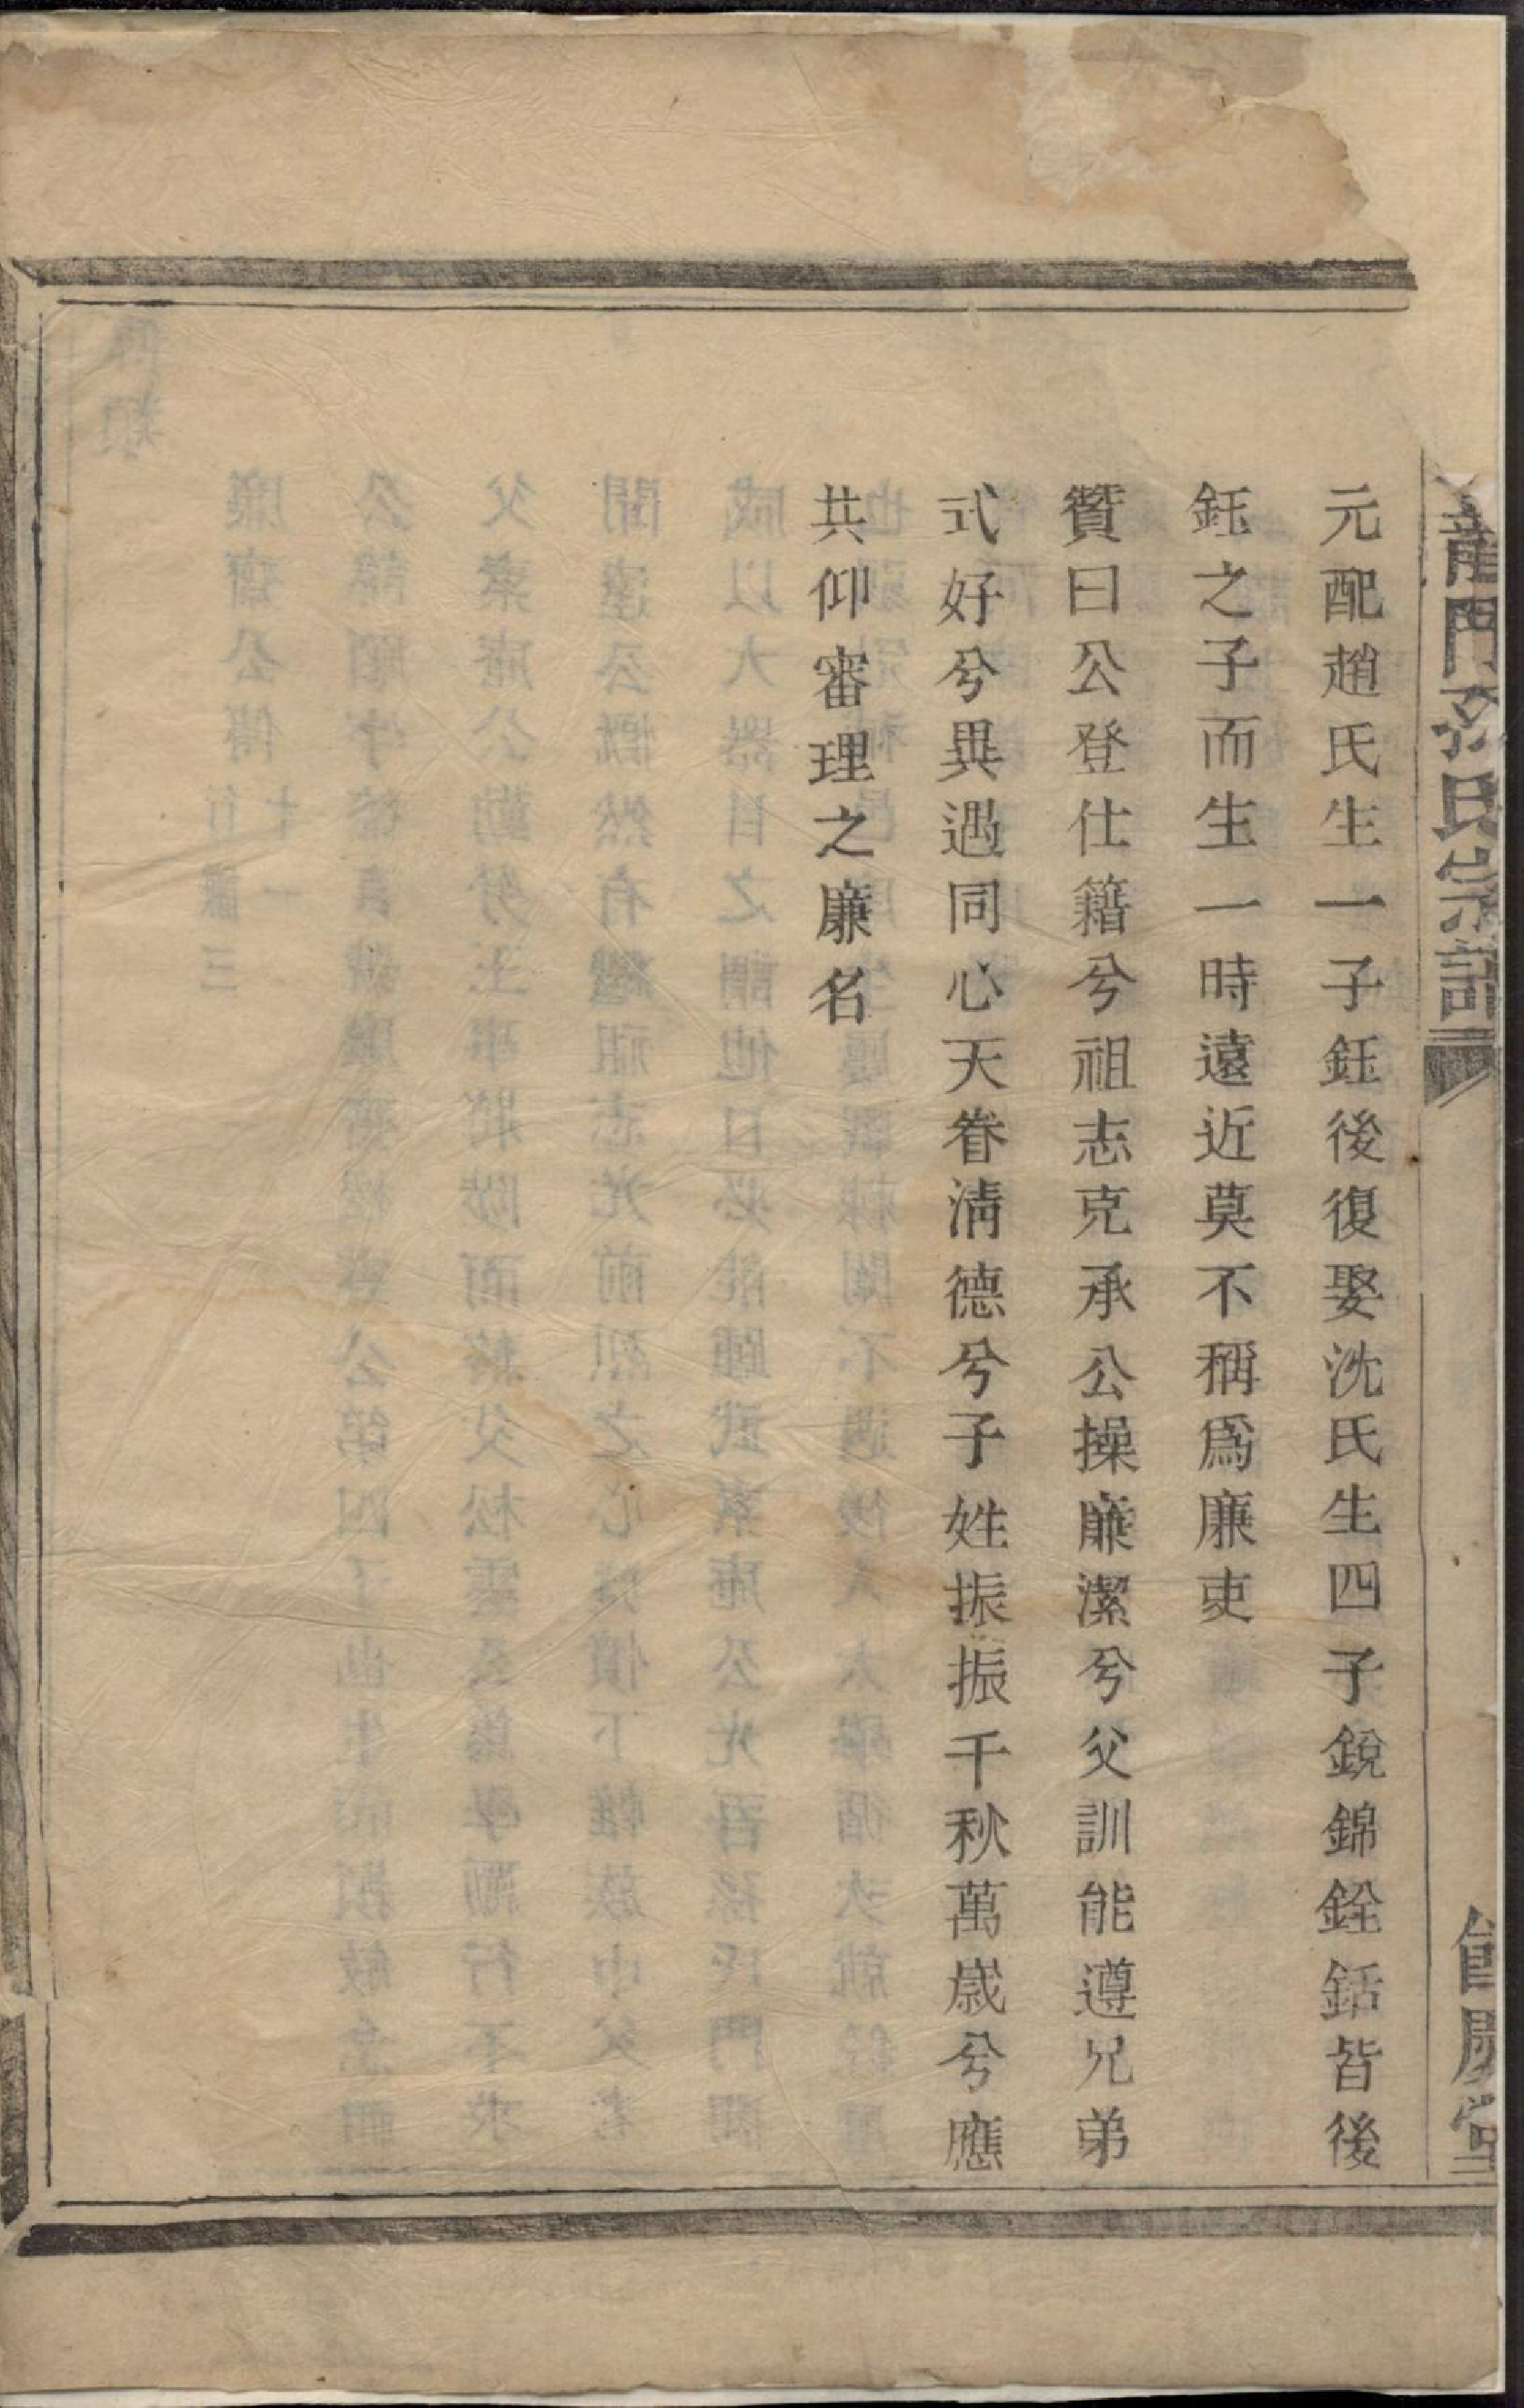 龍門孫氏宗譜
餘慶堂
元配趙氏生一子鈺後復娶沈氏生四子銳錦銓銛皆後
鈺之子而生一時遠近莫不稱爲廉吏
贊曰公登仕籍兮祖志克承公操廉潔兮父訓能遵兄弟
式好兮異遇同心天眷淸德兮子姓振振千秋萬歲兮應
共仰審理之廉名